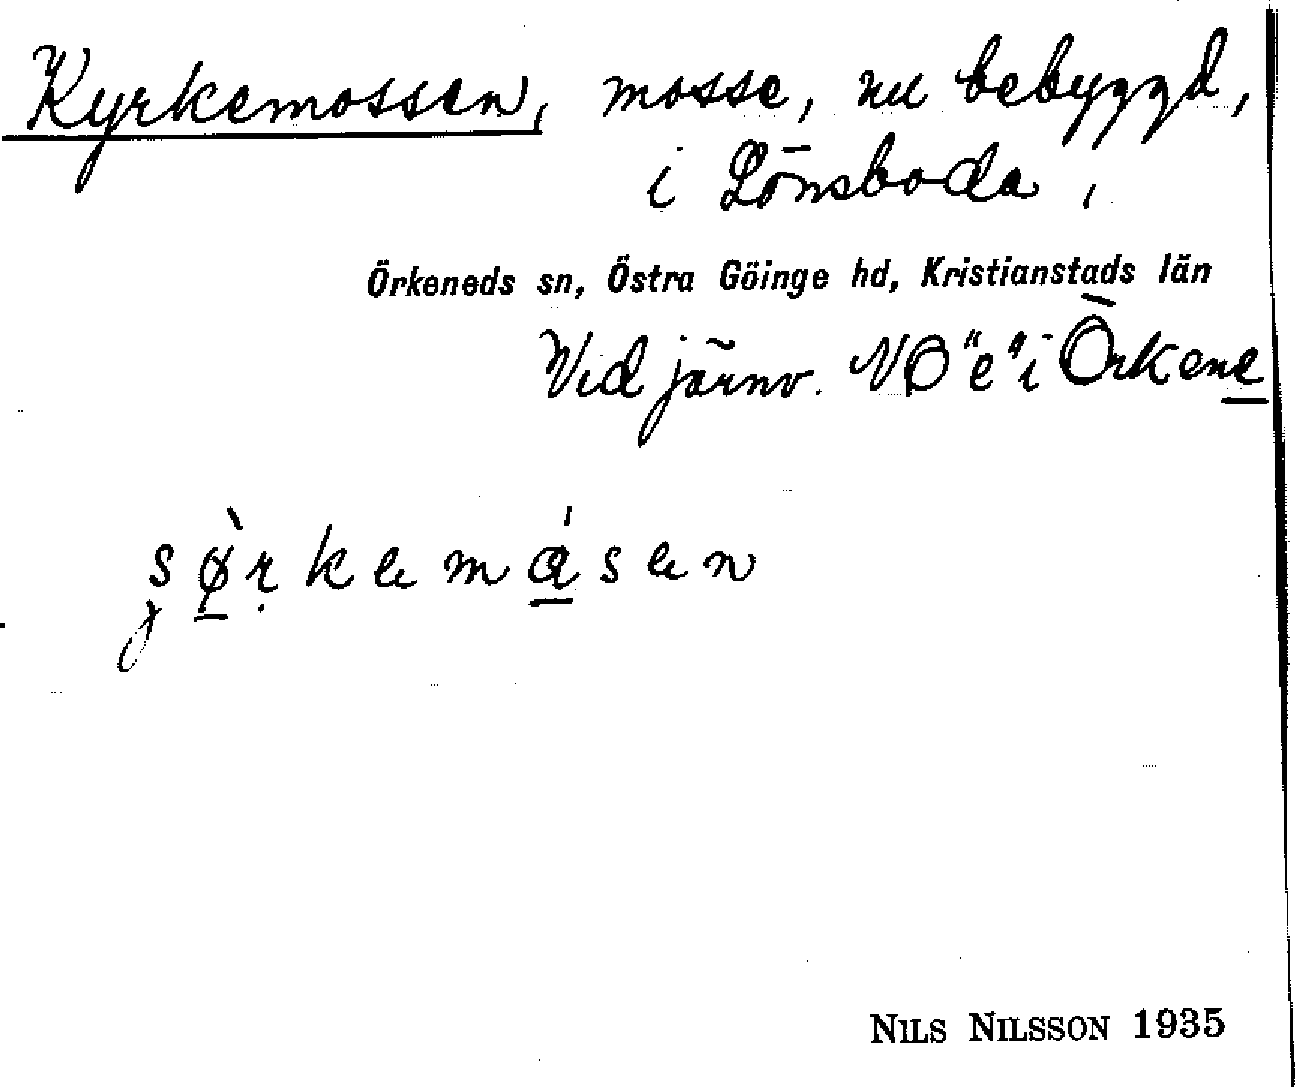 Kyrkemossen, mosse, nu bebyggd,
i Lönsboda,
Örkeneds sn, Östra Göinge hd, Kristianstads län
Vid järnv. NO "e" i Örkene
NILS NILSSON 1935